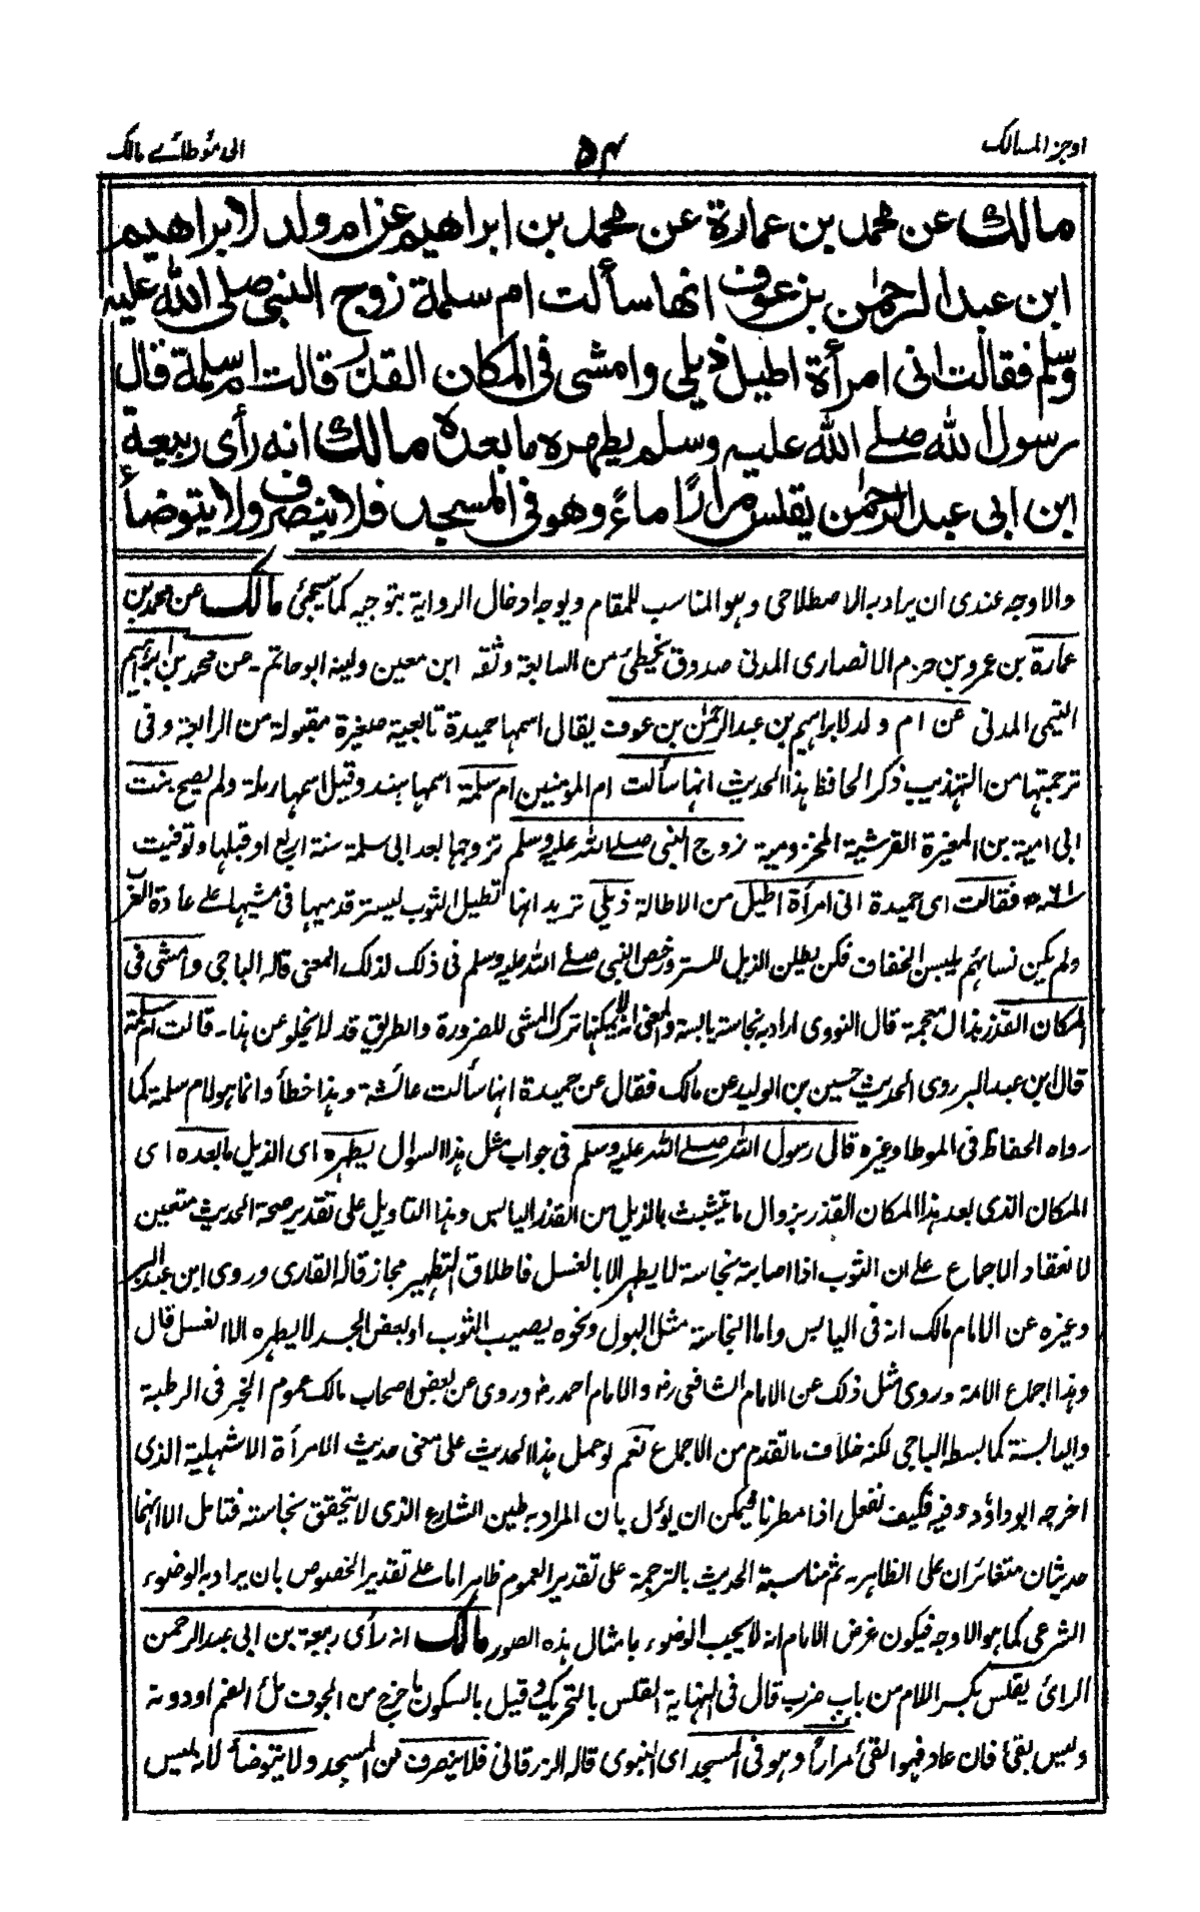 اوجز المسالك
٥٤
الى مؤطائے مالك
مالك عن محمد بن عمارة عن محمد بن ابراهيم عن ام ولد لابراهيم
ابن عبد الرحمٰن بن عوف انها سألت ام سلمة زوج النبى صلى الله عليه
وسلم فقالت انى امرأة اطيل ذيلى وامشى فى المكان القذر قالت ام سلمة قال
رسول الله صلے الله عليه وسلم يطهره ما بعده مالك انه رأى ربيعة
ابن ابى عبد الرحمٰن يقلس مرارًا ماءً وهو فى المسجد فلا ينصرف ولا يتوضأ
والاوجه عندى ان يراد به الاصطلاحى وهو المناسب للمقام ويوجه ادخال الرواية بتوجيه كما سيجئ مالك عن محمد بن
عمارة بن عمرو بن حزم الانصارى المدنى صدوق يخطئ من السابعة وثقه ابن معين ولينه ابو حاتم - عن محمد بن ابراهيم
التيمى المدنى عن ام ولد لابراهيم بن عبد الرحمٰن بن عوف يقال اسمها حميدة تابعية صغيرة مقبولة من الرابعة وفى
ترجمتها من التهذيب ذكر الحافظ هذا الحديث انها سألت ام المؤمنين ام سلمة اسمها هند وقيل اسمها رملة ولم يصح بنت
ابى امية بن المغيرة القرشية المخزومية زوج النبى صلے الله عليه وسلم تزوجها بعد ابى سلمة سنة اربع او قبلها وتوفيت
فقالت اى حميدة انى امرأة اطيل من الاطالة ذيلى تريد انها تطيل الثوب ليستر قدميها فى مشيها على عادة العرب
ولم يكن نسائهم يلبسن الخفاف فكن يطلن الذيل للستر ورخص النبى صلے الله عليه وسلم فى ذلك لذلك المعنى قاله الباجى وامشى فى
المكان القذر بذال معجمة قال النووى اراد به نجاسة يابسة والمعنى انه لا يمكنها ترك المشى للضرورة والطريق قد لا يخلو عن هذا - قالت ام سلمة
قال ابن عبد البر روى الحديث حسين بن الوليد عن مالك فقال عن حميدة انها سألت عائشة وهذا خطأ وانما هو لام سلمة كما
رواه الحفاظ فى الموطا وغيره قال رسول الله صلے الله عليه وسلم فى جواب مثل هذا السوال يطهره اى الذيل ما بعده اى
المكان الذى بعد هذا المكان القذر بزوال ما يتشبث بالذيل من القذر اليابس وهذا التاويل على تقدير صحة الحديث متعين
لانعقاد الاجماع على ان الثوب اذا اصابته نجاسة لا يطهر الا بالغسل فاطلاق التطهير مجاز قاله القارى وروى ابن عبد البر
وغيره عن الامام مالك انه فى اليابس واما النجاسة مثل البول ونحوه يصيب الثوب او بعض الجسد لا يطهره الا الغسل قال
وهذا اجماع الامة وروى مثل ذلك عن الامام الشافعى رض والامام احمد رض وروى عن بعض اصحاب مالك عموم الخبر فى الرطبة
واليابسة كما بسطه الباجى لكنه خلاف ما تقدم من الاجماع نعم لو حمل هذا الحديث على معنى حديث الامرأة الاشهلية الذى
اخرجه ابو داؤد وفيه فكيف نفعل اذا مطرنا فيمكن ان يؤل بان المراد به طين الشارع الذى لا يتحقق نجاسته فتامل الا انهما
حديثان متغائران على الظاهر ثم مناسبة الحديث بالترجمة على تقدير العموم ظاهر اما على تقدير الخصوص بان يراد به الوضوء
الشرعى كما هو الاوجه فيكون غرض الامام انه لا يجب الوضوء بامثال هذه الصور مالك انه رأى ربيعة بن ابى عبد الرحمن
الرائ يقلس بكسر اللام من باب ضرب قال فى النهاية القلس بالتحريك وقيل بالسكون ما خرج من الجوف ملأ الفم او دونه
وليس بقئ فان عاد فهو القئ مراراً وهو فى المسجد اى النبوى قاله الزرقانى فلا ينصرف من المسجد ولا يتوضأ لانه ليس